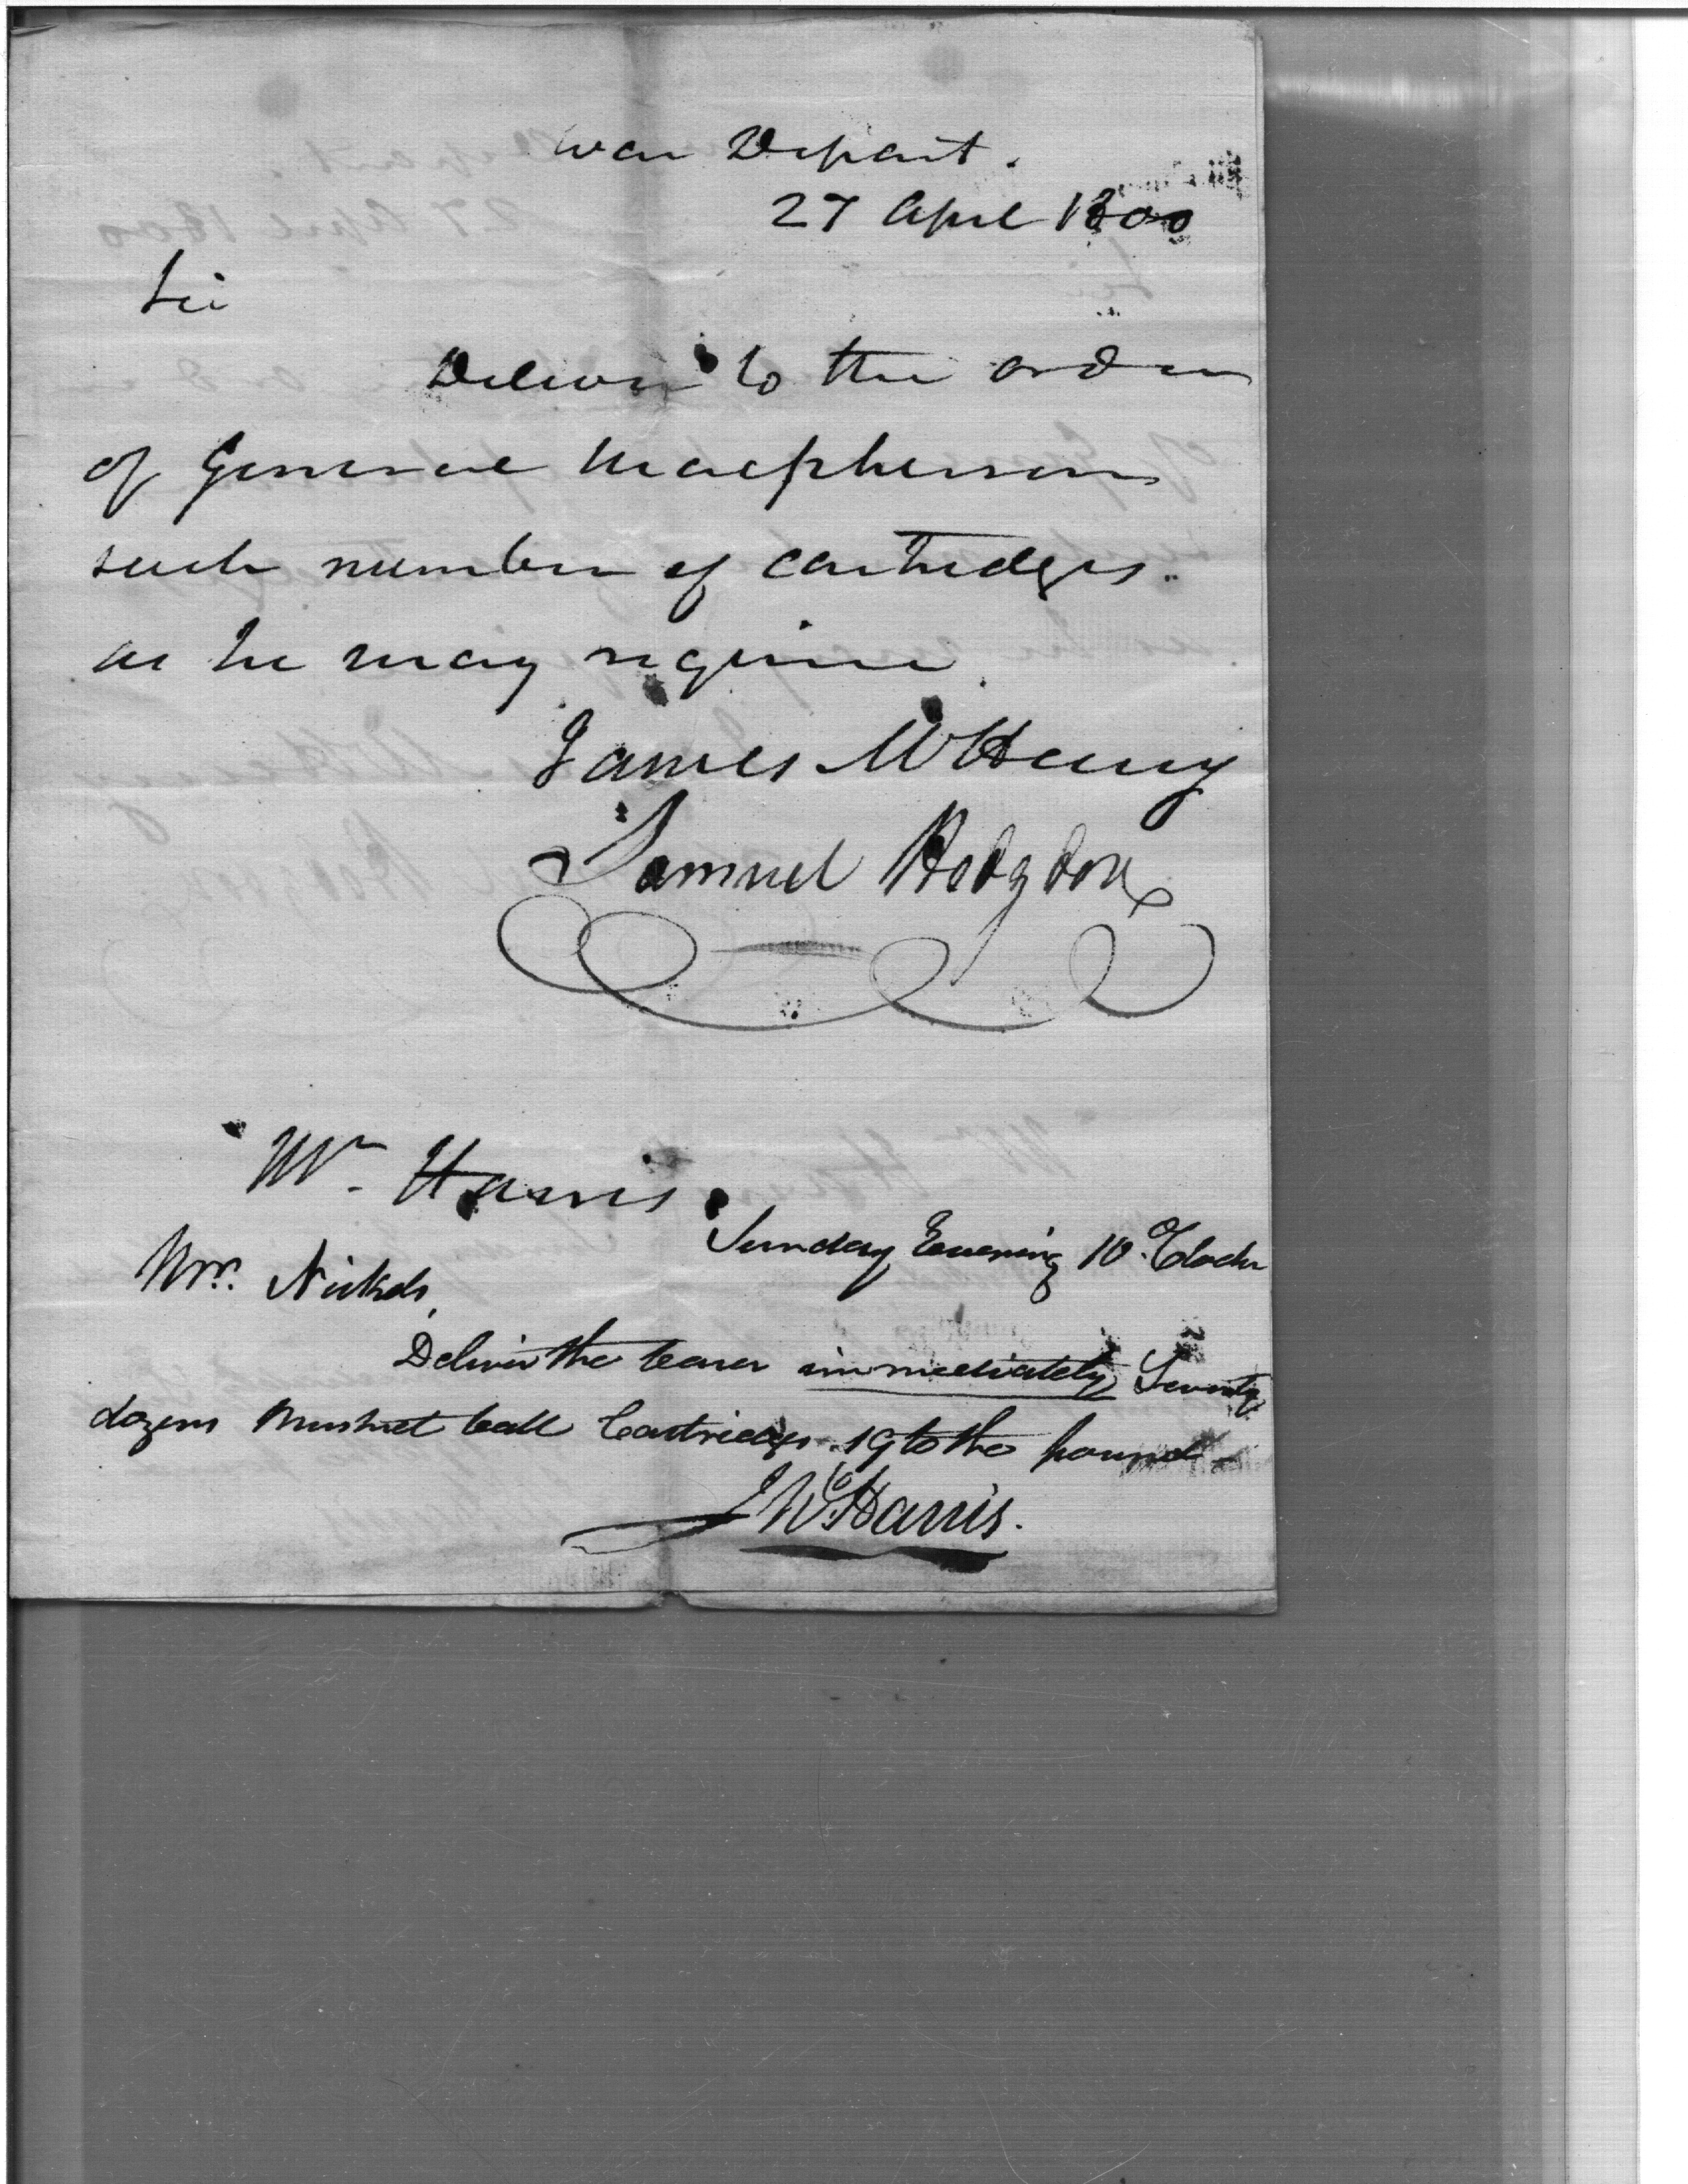 War Depart.
27 April 1800
Sir
Deliver to the order
of General Macpherson
such number of cartridges
as he may require.
James McHenry
Samuel Hodgdon
Mr. Harris
Sunday Evening 10 O'Clock
Mr. Nickols,
Deliver the bearer immediately Seventy
dozens Musket ball Cartridges 19 to the pound
J W. Harris.